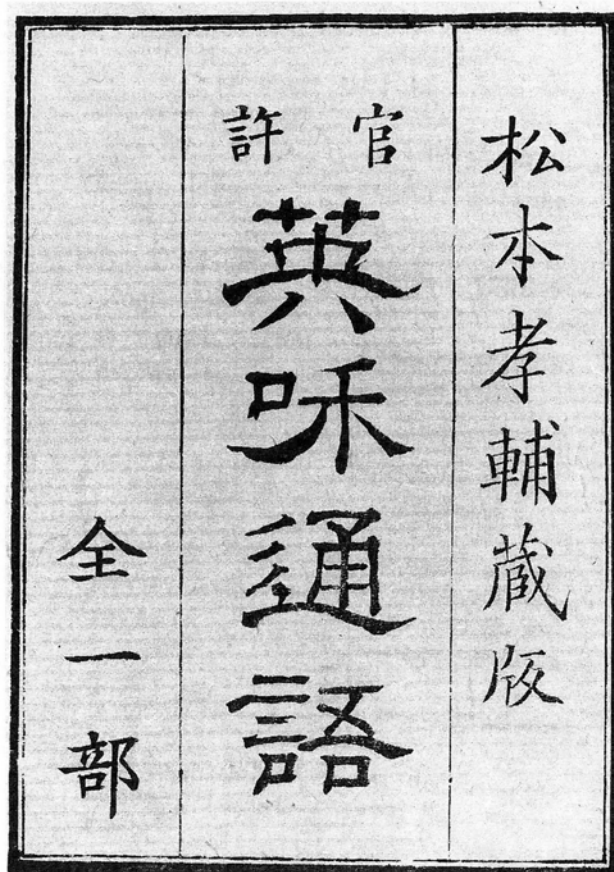 松本孝輔蔵版
官許
英咊通語
全一部